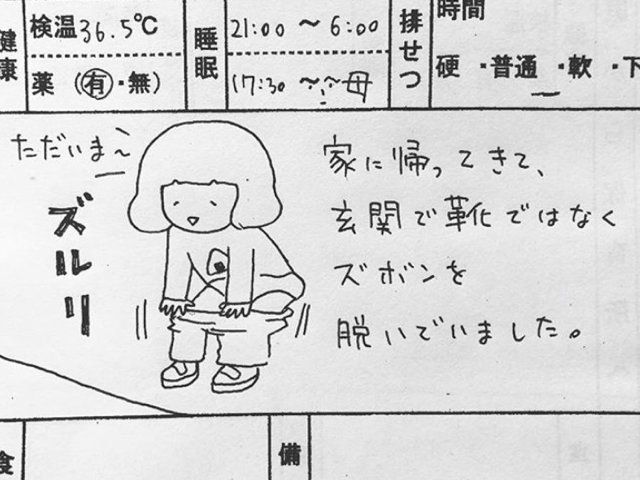 健康
検温 36.5℃
薬 (有・無)
睡眠
21:00 〜 6:00
17:30 〜
母
排せつ
時間
硬・普通・軟・下
ただいま〜
ズルリ
家に帰ってきて、
玄関で靴ではなく
ズボンを
脱いでいました。
食
備